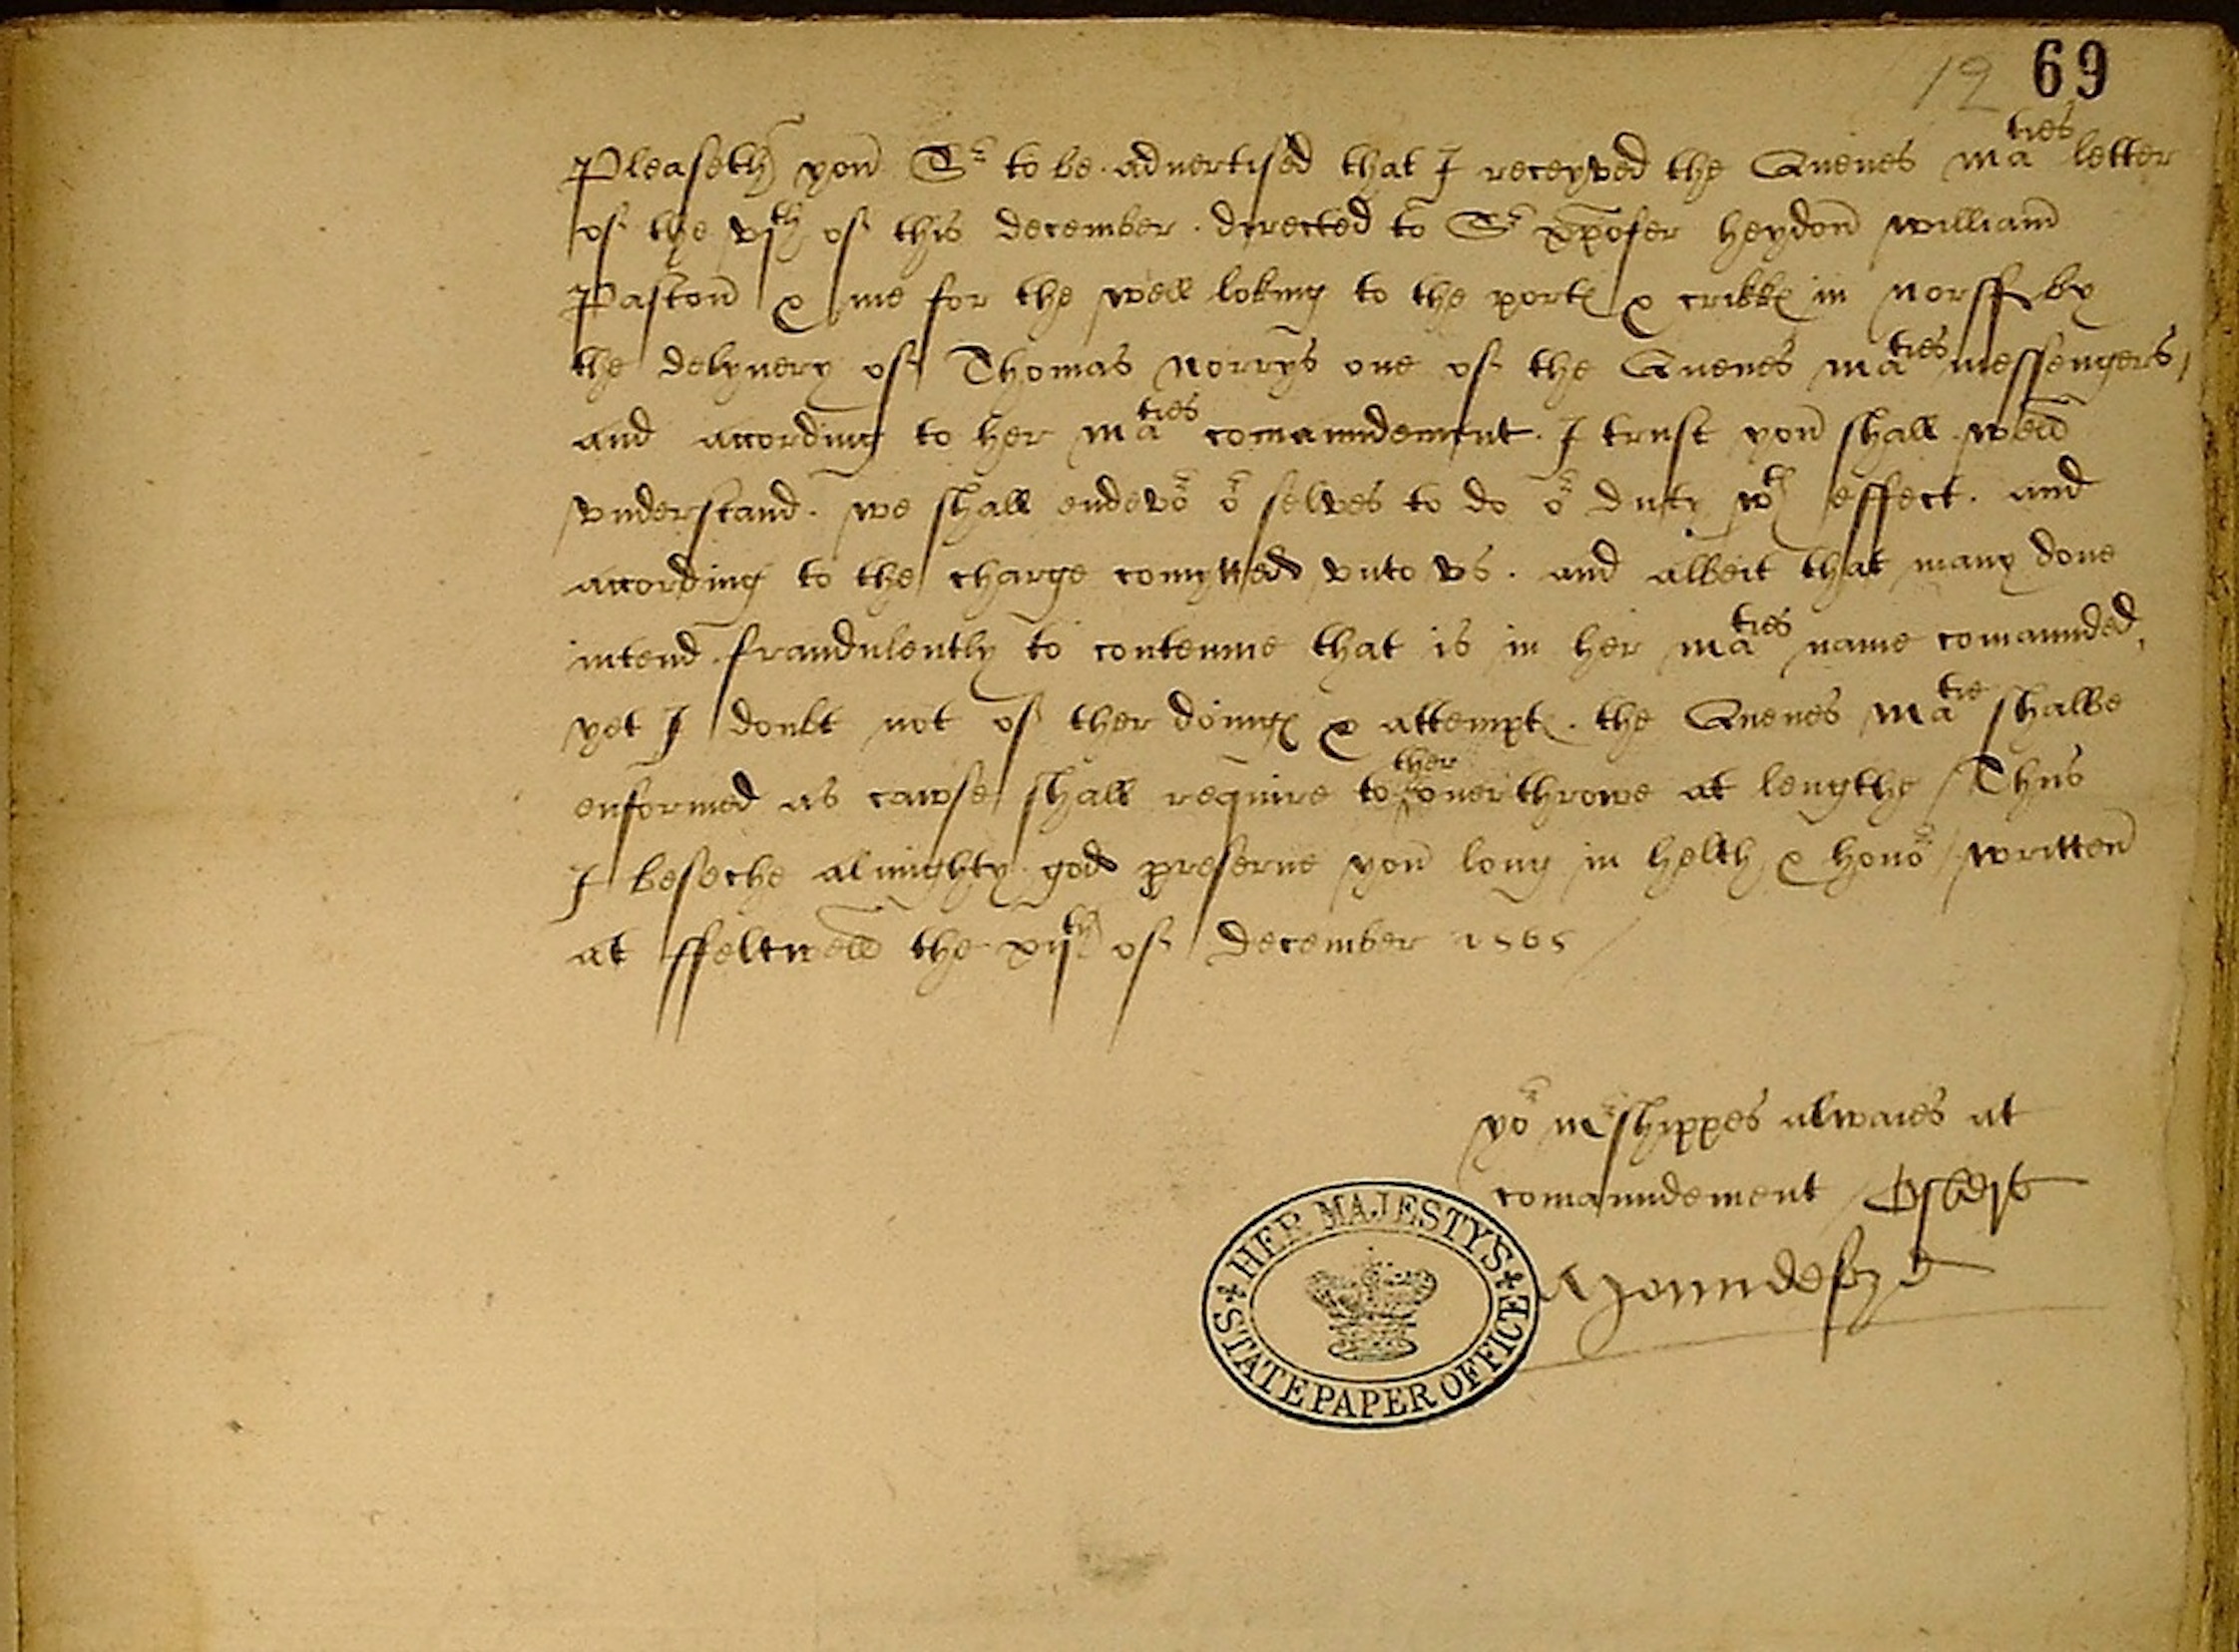 12 69
Pleaseth you Sr to be advertised that I receyved the Quenes maties letter
of the vjth of this december directed to Sr xpofer heydon william
Paston & me for the well loking to the portes & crikkes in norff by
the delyuery of Thomas Norrys one of the Quenes maties messengers,
and according to her maties comaundement. I trust you shall well
vnderstand. we shall endevor or selves to do or duty wth effect. and
according to the charge comytted vnto vs. and albeit that many done
intend fraudulently to contemne that is in her maties name comaunded,
yet I doubt not of ther doinges & attemptes. the Quenes matie shalbe
enformed as cawse shall require to ther ouerthrowe at lengthe / Thus
I beseche almighty god preserue you long in helth & honor / written
at ffeltwell the xijth of december 1565 /
yor mrshippes alwaies at
comaundement / Osbert
Moundeford
HER MAJESTY'S
STATE PAPER OFFICE